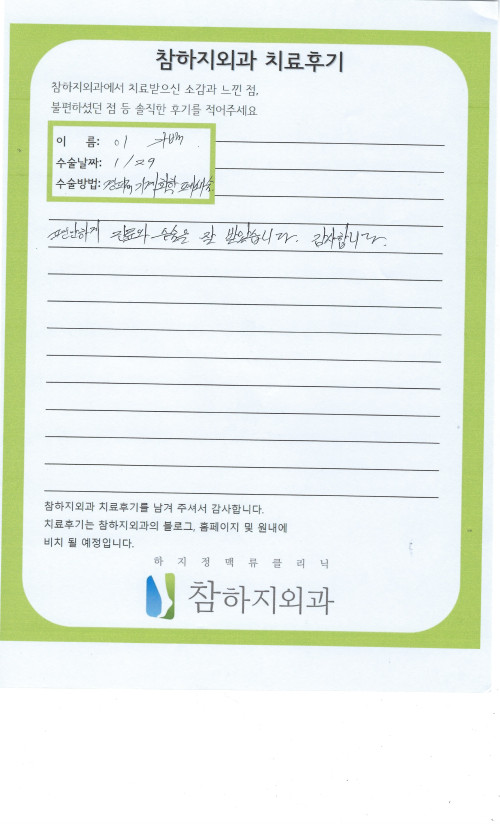 참하지외과 치료후기
참하지외과에서 치료받으신 소감과 느낀 점,
불편하셨던 점 등 솔직한 후기를 적어주세요
이 름: 이
수술날짜: 1/29
수술방법: 기계화학 폐쇄술
편안하게 진료와 수술을 잘 받았습니다. 감사합니다.
참하지외과 치료후기를 남겨 주셔서 감사합니다.
치료후기는 참하지외과의 블로그, 홈페이지 및 원내에
비치 될 예정입니다.
하지정맥류클리닉
참하지외과